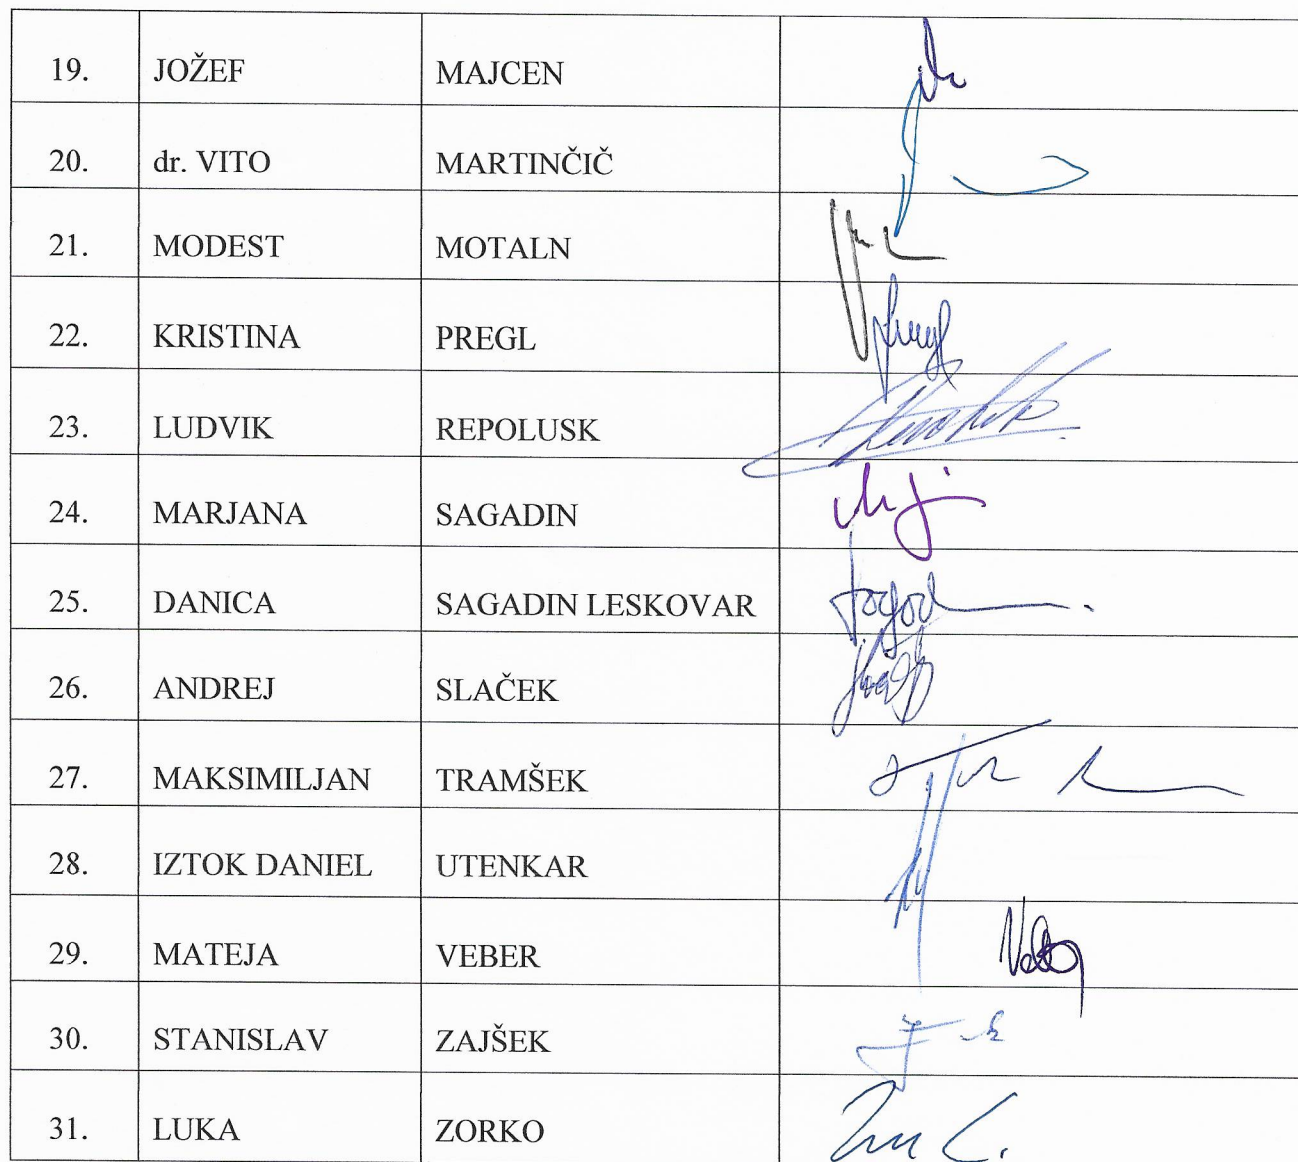 19. JOŽEF MAJCEN
20. dr. VITO MARTINČIČ
21. MODEST MOTALN
22. KRISTINA PREGL
23. LUDVIK REPOLUSK
24. MARJANA SAGADIN
25. DANICA SAGADIN LESKOVAR
26. ANDREJ SLAČEK
27. MAKSIMILJAN TRAMŠEK
28. IZTOK DANIEL UTENKAR
29. MATEJA VEBER
30. STANISLAV ZAJŠEK
31. LUKA ZORKO